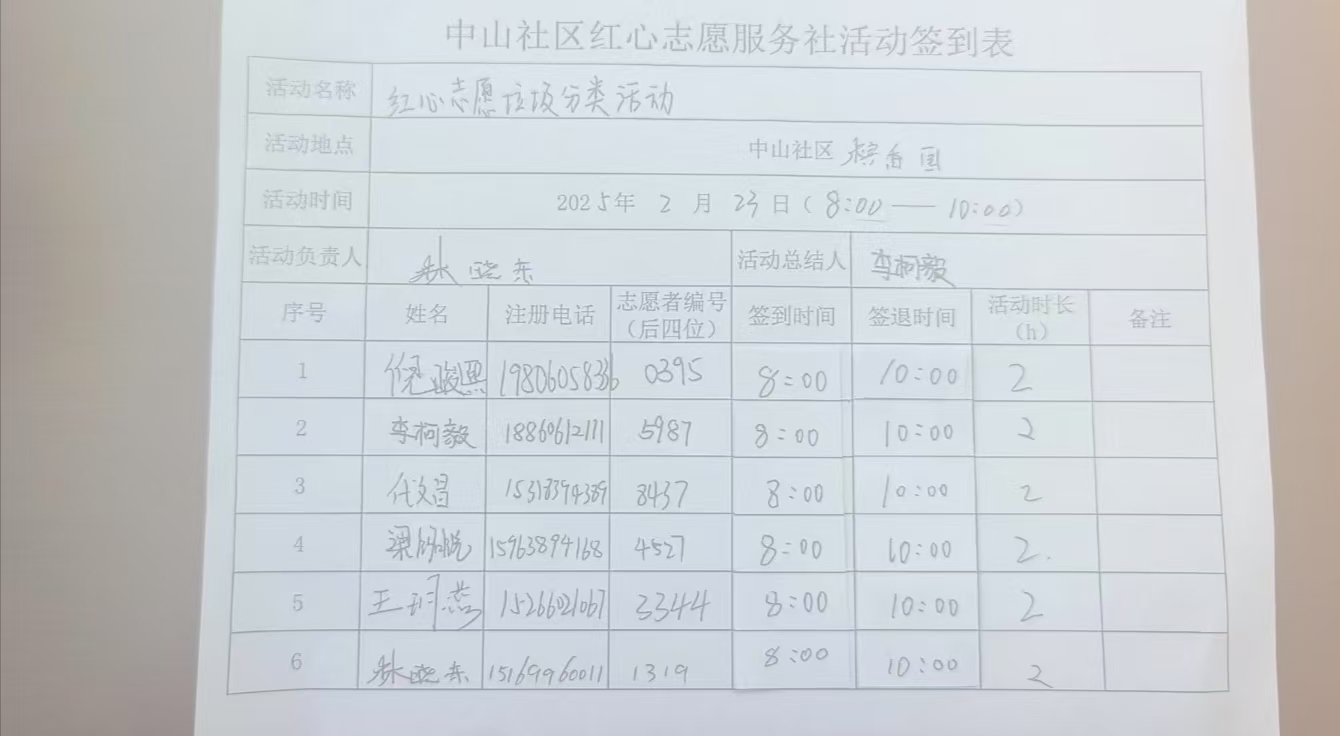 中山社区红心志愿服务社活动签到表
活动名称 红心志愿垃圾分类活动
活动地点 中山社区 香园
活动时间 2025年 2 月 23 日（8:00 —— 10:00）
活动负责人 林晓东 活动总结人 李柯毅
序号 姓名 注册电话 志愿者编号（后四位） 签到时间 签退时间 活动时长（h） 备注
1 倪 19806058336 0395 8:00 10:00 2
2 李柯毅 18860612111 5987 8:00 10:00 2
3 代文昌 15318394389 8437 8:00 10:00 2
4 梁 悦 15963894168 4527 8:00 10:00 2.
5 王 燕 15266021067 3344 8:00 10:00 2
6 林晓东 15169960011 1319 8:00 10:00 2